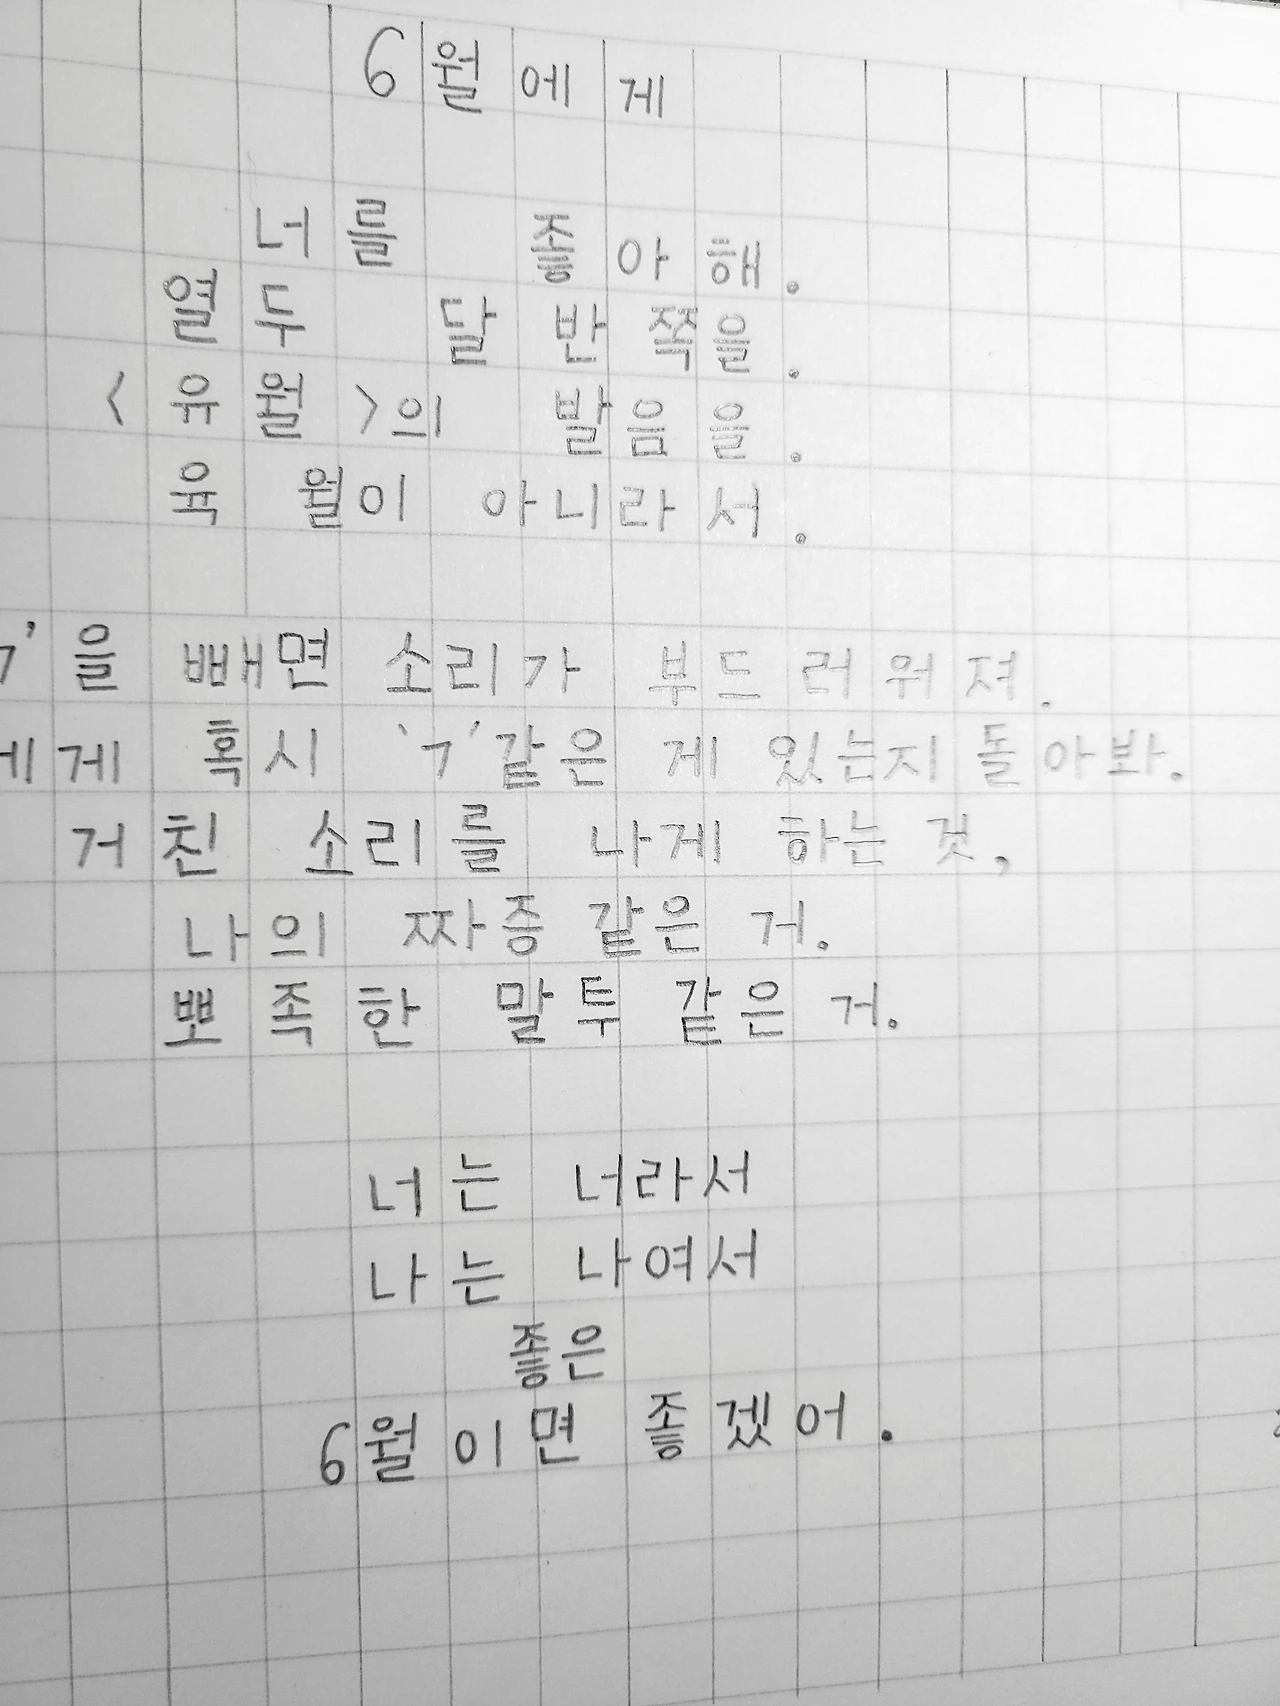 6월에게
너를 좋아해.
열두 달 반 쪽을.
<유월>의 발음을.
육 월이 아니라서.
ㄱ'을 빼면 소리가 부드러워져.
에게 혹시 'ㄱ'같은 게 있는지 돌아봐.
거친 소리를 나게 하는 것,
나의 짜증 같은 거.
뾰족한 말투 같은 거.
너는 너라서
나는 나여서
좋은
6월이면 좋겠어.